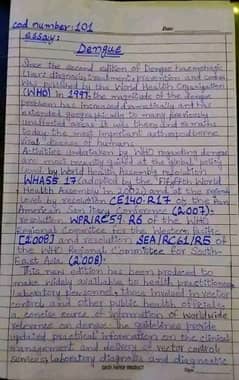 cod number: 101
Essay:
Date:
Dengue
Since the second edition of Dengue haemorrhagic
fever: diagnosis, treatment, prevention and control
was published by the World Health Organization
(WHO) In 1997, the magnitude of the dengue
problem has increased dramatically and has
extended geographically to many previously
unaffected areas. It was then, and remains
today, the most important arthropod-borne
viral disease of humans
Activities undertaken by WHO regarding dengue
are most recently guided at the global policy
by World Health Assembly resolution
WHA55.17 (adopted by the Fifty-fifth World
Health Assembly in 2002) and at the regional
level by resolution CE140.R17 of the Pan
American Conference (2007),
resolution WPR/RC59.R6 of the WHO
Regional Committee for the Western Pacific
[2008] and resolution SEA/RC61/R5 of
the WHO Regional Committee for South-
East Asia (2008).
This new edition has been produced to
make widely available to health practitioners,
laboratory personnel, those involved in vector
control and other public health officials,
a concise source of information of worldwide
relevance on dengue. The guidelines provide
updated practical information on the clinical
management and delivery of vector control
services; laboratory diagnosis and diagnostic